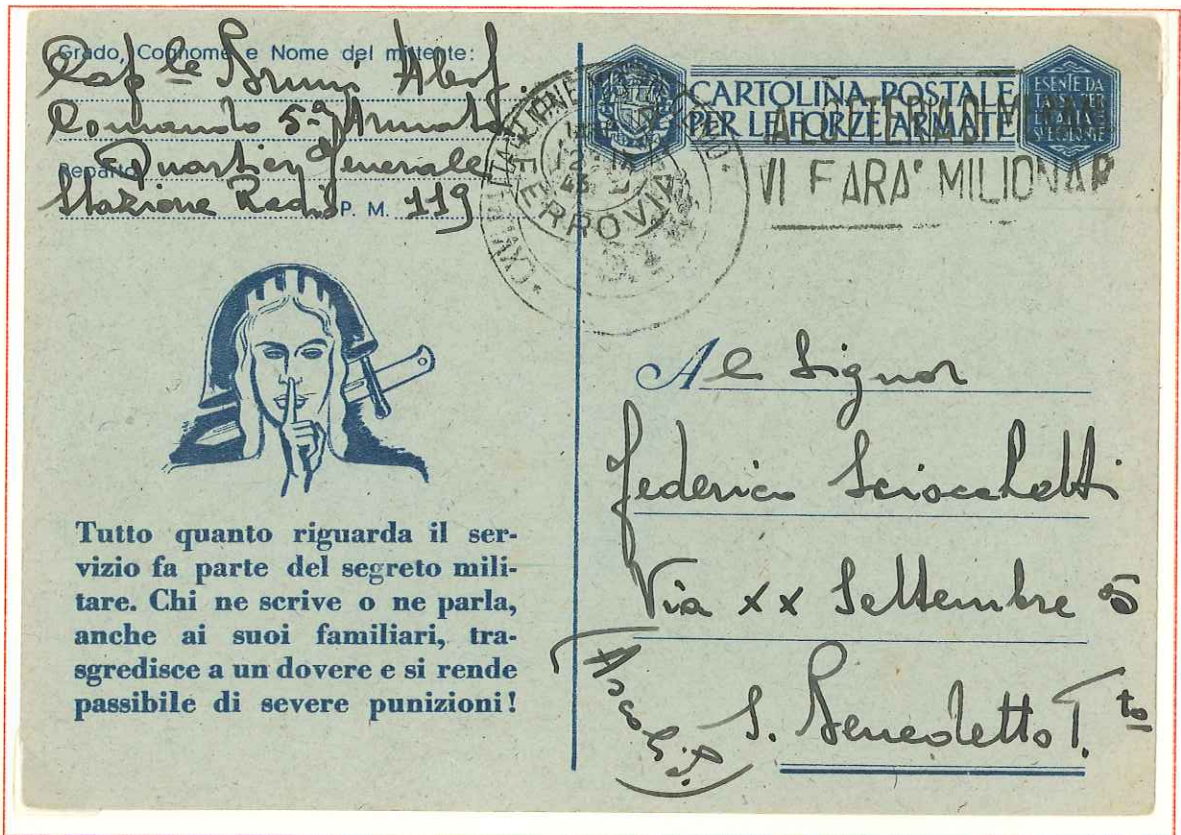 Grado, Cognome e Nome del mittente:
Cap le Bruni
Comando 5ª Armata
Reparto Quartier Generale
Stazione Radio P. M. 119
CARTOLINA POSTALE
PER LE FORZE ARMATE
ESENTE DA
TASSA PER
L'ITALIA
FERROVIA
LA LOTTERIA DI
VI FARA' MILIONAR
Tutto quanto riguarda il ser-
vizio fa parte del segreto mili-
tare. Chi ne scrive o ne parla,
anche ai suoi familiari, tra-
sgredisce a un dovere e si rende
passibile di severe punizioni!
Al Signor
Federico Sciocchetti
Via XX Settembre 5
S. Benedetto T.to
(Ascoli P.)